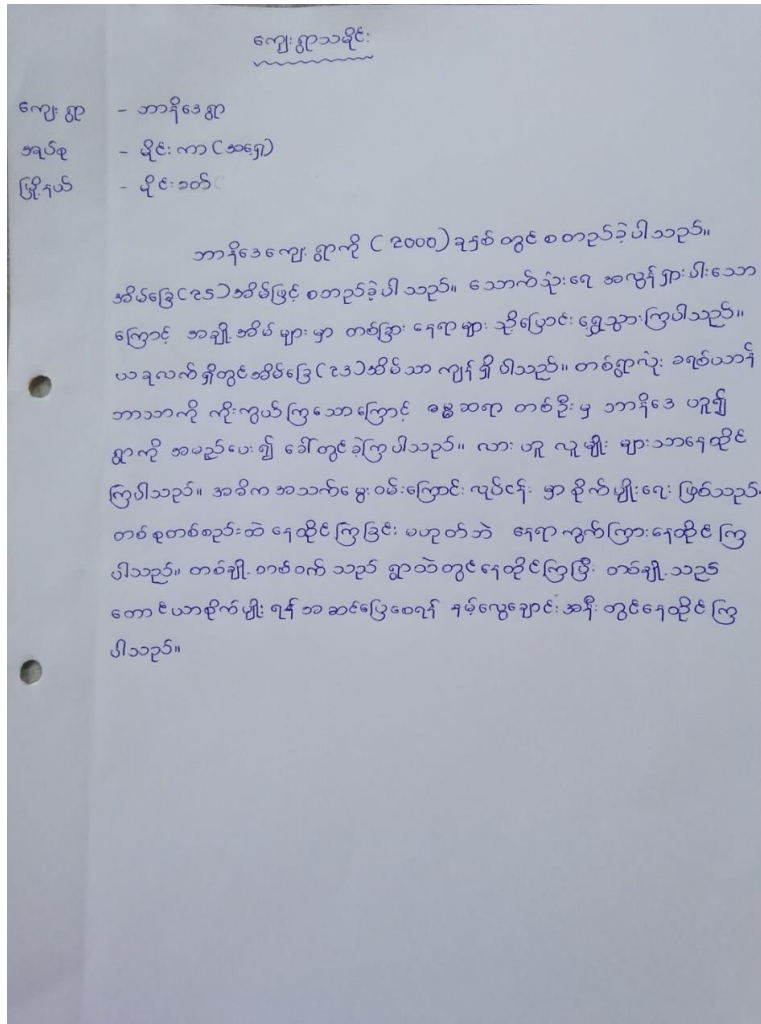 ကျေးရွာသမိုင်း
ကျေးရွာ - ဘာနိဒေရွာ
အုပ်စု - မိုင်းကာ (အရှေ့)
မြို့နယ် - မိုင်းခတ်
ဘာနိဒေကျေးရွာကို (2000) ခုနှစ်တွင်စတည်ခဲ့ပါသည်။
အိမ်ခြေ (၃၅) အိမ်ဖြင့် စတည်ခဲ့ပါသည်။ သောက်သုံးရေ အလွန်ရှားပါးသော
ကြောင့် အချို့အိမ်များမှာ တစ်ခြားနေရာများသို့ပြောင်းရွှေ့သွားကြပါသည်။
ယခုလက်ရှိတွင်အိမ်ခြေ (၂၃) အိမ်သာ ကျန်ရှိပါသည်။ တစ်ရွာလုံး ခရစ်ယာန်
ဘာသာကို ကိုးကွယ်ကြသောကြောင့် ဓမ္မဆရာ တစ်ဦးမှ ဘာနိဒေ ဟူ၍
ရွာကို အမည်ပေး၍ ခေါ်တွင်ခဲ့ကြပါသည်။ လားဟူ လူမျိုးများသာနေထိုင်
ကြပါသည်။ အဓိက အသက်မွေးဝမ်းကြောင်း လုပ်ငန်းမှာ စိုက်ပျိုးရေး ဖြစ်သည်။
တစ်စုတစ်စည်းထဲ နေထိုင်ကြခြင်း မဟုတ်ဘဲ နေရာကွက်ကြားနေထိုင်ကြ
ပါသည်။ တစ်ချို့တစ်ဝက်သည် ရွာထဲတွင်နေထိုင်ကြပြီး တစ်ချို့သည်
တောင်ယာစိုက်ပျိုးရန် အဆင်ပြေစေရန် နမ့်လွေချောင်းအနီးတွင်နေထိုင်ကြ
ပါသည်။